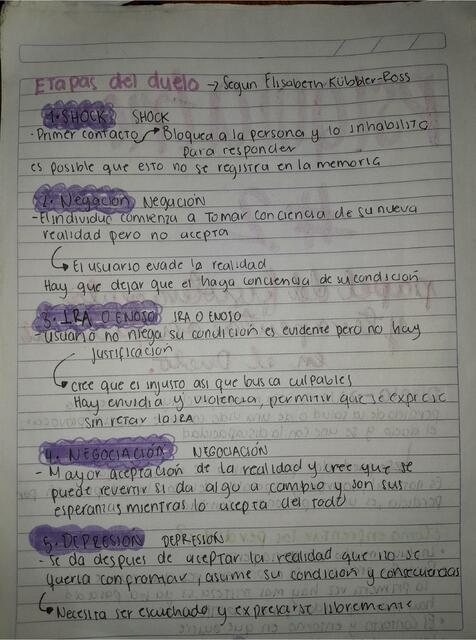 Etapas del duelo → Segun Elisabeth Kübbler-Ross
1. SHOCK SHOCK
- Primer contacto → Bloquea a la persona y lo inhabilita
para responder
es posible que esto no se registra en la memoria
2. Negación NEGACIÓN
- El individuo comienza a tomar conciencia de su nueva
realidad pero no acepta
→ El usuario evade la realidad
Hay que dejar que el haga conciencia de su condición
3. IRA O ENOJO IRA O ENOJO
- Usuario no niega su condición es evidente pero no hay
justificación
→ cree que es injusto asi que busca culpables
Hay envidia y violencia, permitir que se exprese
sin retar la IRA
4. NEGOCIACIÓN NEGOCIACIÓN
- Mayor aceptación de la realidad y cree que se
puede revertir si da algo a cambio y son sus
esperanzas mientras lo acepta del todo
5. DEPRESIÓN DEPRESIÓN
- Se da despues de aceptar la realidad que no se
queria confrontar, asume su condición y consecuencias
→ Necesita ser escuchado y expresarse libremente